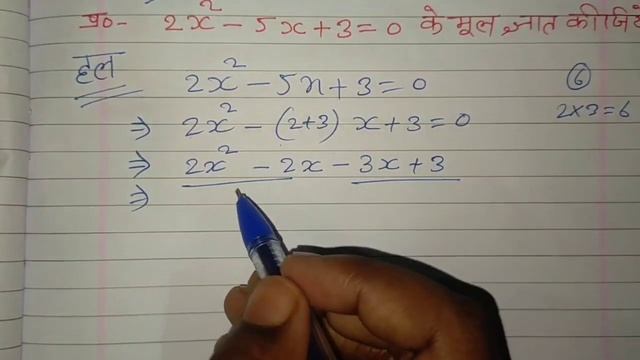 प्र०- 2x² - 5x + 3 = 0 के मूल ज्ञात कीजिये
हल 2x² - 5x + 3 = 0
⑥
2×3=6
⇒ 2x² - (2+3) x + 3 = 0
⇒ 2x² - 2x - 3x + 3
⇒